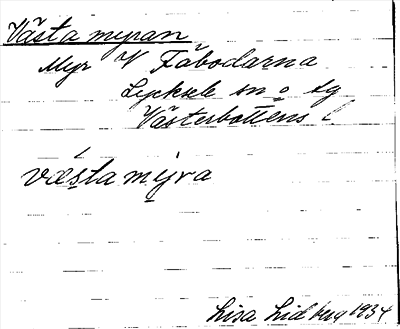 Västa myran
Myr V Fäbodarna
Lycksele sn o tg
Västerbottens l
væsta myra
Lisa Lidberg 1934